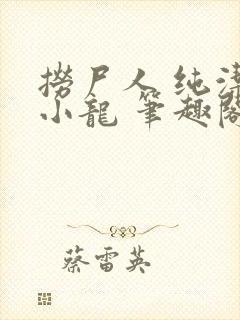 撈尸人 纯洁
小龍 筆趣閣
蔡雷英